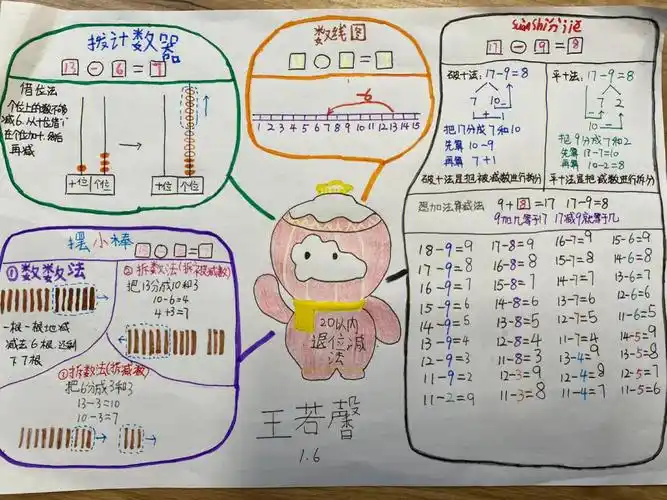 拨计数器
13 - 6 = 7
借位法
个位上的数不够
减6.从十位借1
在个位加十.然后
再减
十位 个位
十位 个位
数线图
-6
1 2 3 4 5 6 7 8 9 10 11 12 13 14 15
17 - 9 = 8
破十法: 17-9=8
7 10
把17分成7和10
先算 10-9
再算 7+1
破十法是把被减数进行拆分
平十法: 17-9=8
7 2
10
把9分成7和2
先算 17-7=10
再算 10-2=8
平十法是把减数进行拆分
想加法算减法 9+8=17 17-8=9
9加几等于17 17减9就等于几
18-9=9 17-8=9 16-7=9 15-6=9
17-9=8 16-8=8 15-7=8 14-6=8
16-9=7 15-8=7 14-7=7 13-6=7
15-9=6 14-8=6 13-7=6 12-6=6
14-9=5 13-8=5 12-7=5 11-6=5
13-9=4 12-8=4 11-7=4 14-5=9
12-9=3 11-8=3 13-4=9 13-5=8
11-9=2 12-3=9 12-4=8 12-5=7
11-2=9 11-3=8 11-4=7 11-5=6
摆小棒
①数数法
一根一根地减
减去6根.还剩
下7根
②拆数法(拆被减数)
把13分成10和3
10-6=4
4+3=7
拆数法(拆减数)
把6分成3和3
13-3=10
10-3=7
20以内
退位减
法
王若馨
1.6